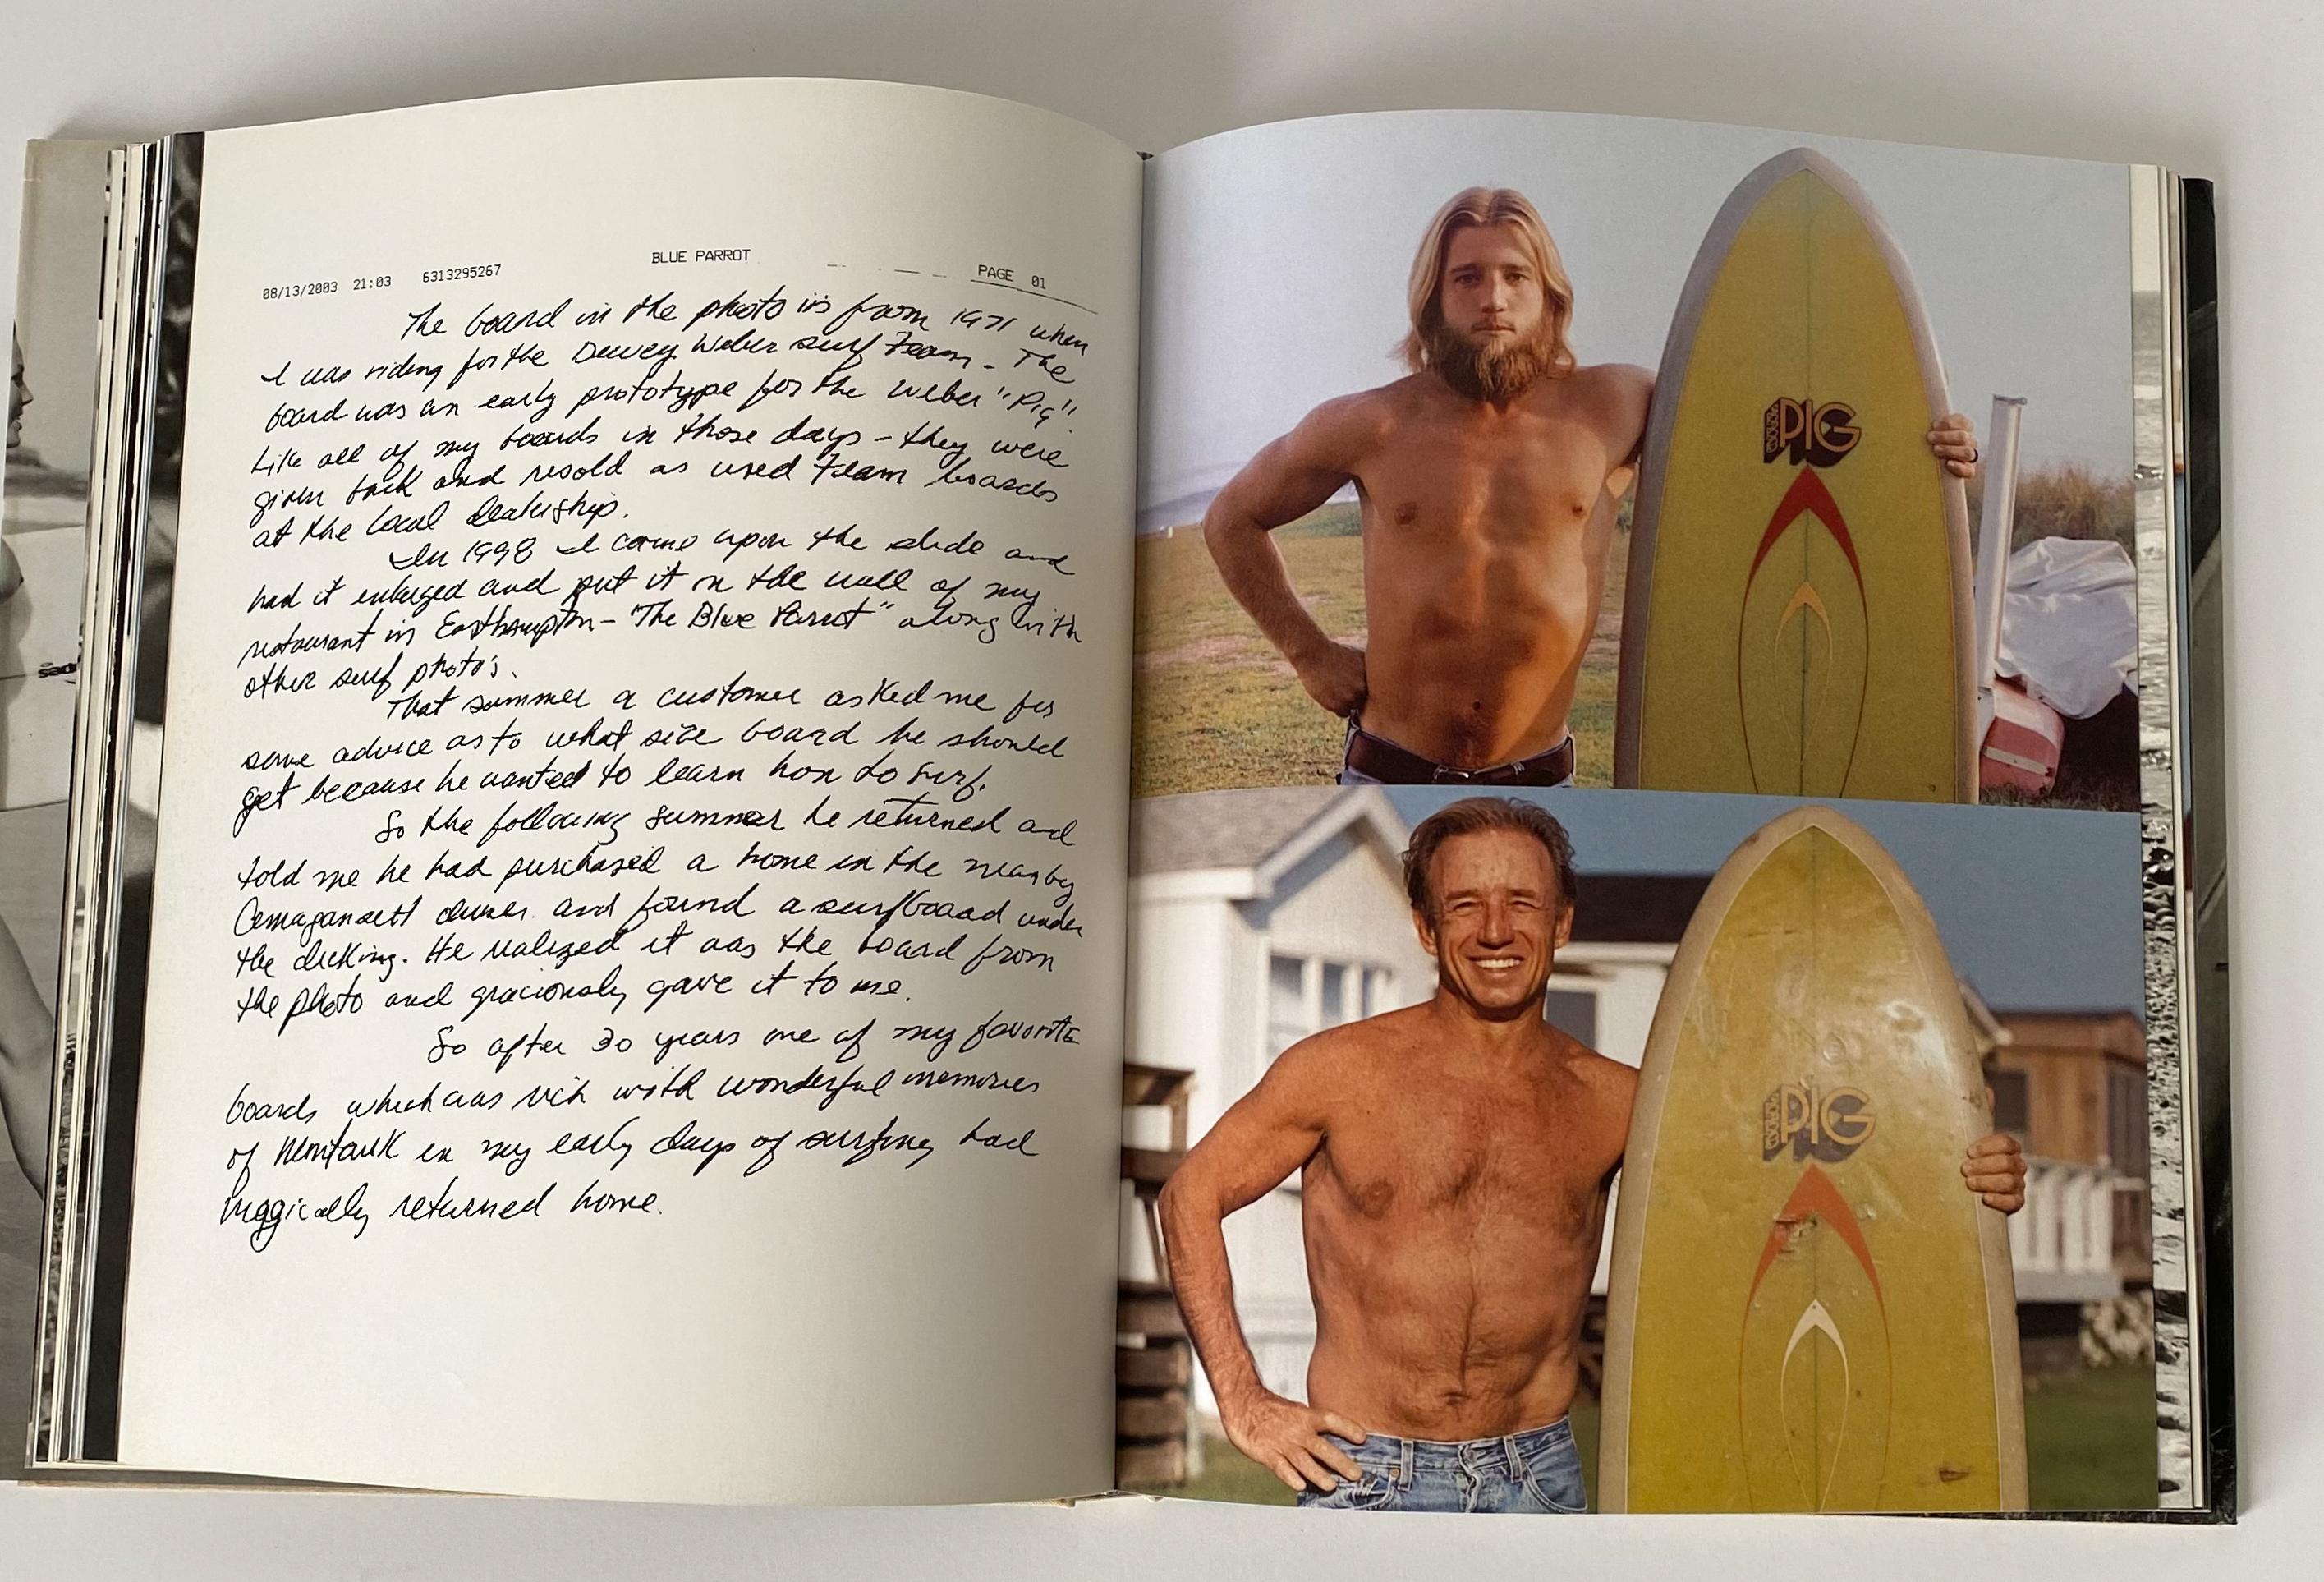 BLUE PARROT
08/13/2003 21:03 6313295267 PAGE 01
The board in the photo is from 1971 when
I was riding for the Dewey Weber surf Team - The
board was an early prototype for the Weber "Pig".
Like all of my boards in those days - they were
given back and resold as used Team boards
at the local dealership.
In 1998 I came upon the slide and
had it enlarged and put it on the wall of my
restaurant in Easthampton - "The Blue Parrot" along with
other surf photo's.
That summer a customer asked me for
some advice as to what size board he should
get because he wanted to learn how to surf.
So the following summer he returned and
told me he had purchased a home in the nearby
Amagansett dunes and found a surfboard under
the decking. He realized it was the board from
the photo and graciously gave it to me.
So after 30 years one of my favorite
boards which was rich with wonderful memories
of Montauk in my early days of surfing had
magically returned home.
PIG
PIG